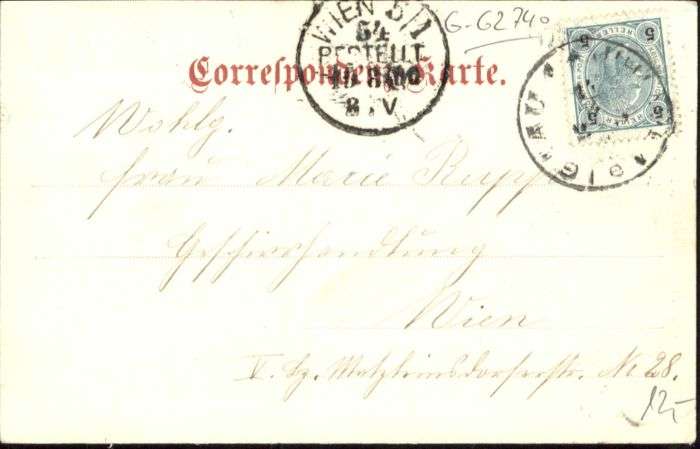 WIEN 5/1
64
BESTELLT
8.V
G-G2740
5 5
Correspondenz-Karte.
Wohlg.
Frau Marie
Geschirrhandlung
Wien
V. Bz. Matzleinsdorferstr. No 28.
12,-